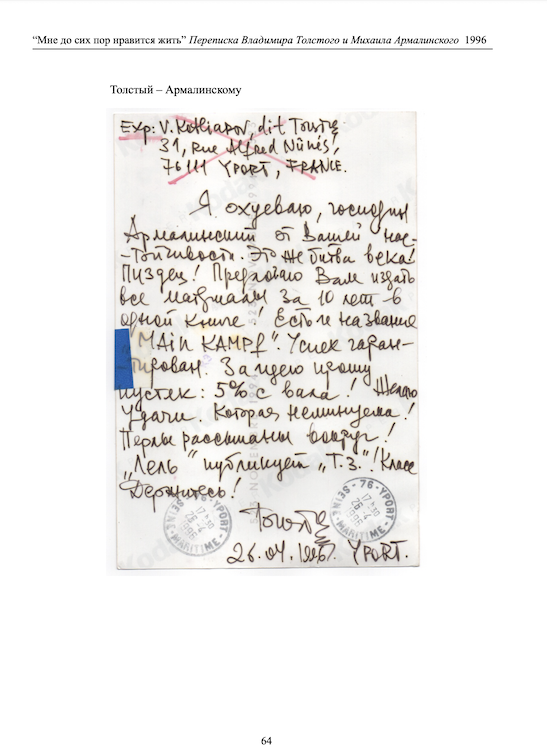 “Мне до сих пор нравится жить” Переписка Владимира Толстого и Михаила Армалинского 1996
Толстый – Армалинскому
Exp: V. Kotliarov, dit Tolsty
31, Rue Alfred Nunès,
76111 YPORT, FRANCE.
Я охуеваю, господин
Армалинский от Вашей нас-
-тойчивости. Это же битва века!
Пиздец! Предлагаю Вам издать
все материалы за 10 лет в
одной книге! Есть и название
"MAiN KAMPf". Успех гаран-
-тирован. За идею прошу
пустяк: 5% с вала! Желаю
удачи. Которая неминуема!
Перлы рассыпаны вокруг!
"Лель" публикует „Т.З."! Класс
Держитесь!
Толстый
26.04.1996. YPORT.
76 - YPORT
17 H 30
26-4
1996
SEINE-MARITIME
76 - YPORT
17 H 30
26-4
1996
SEINE-MARITIME
64